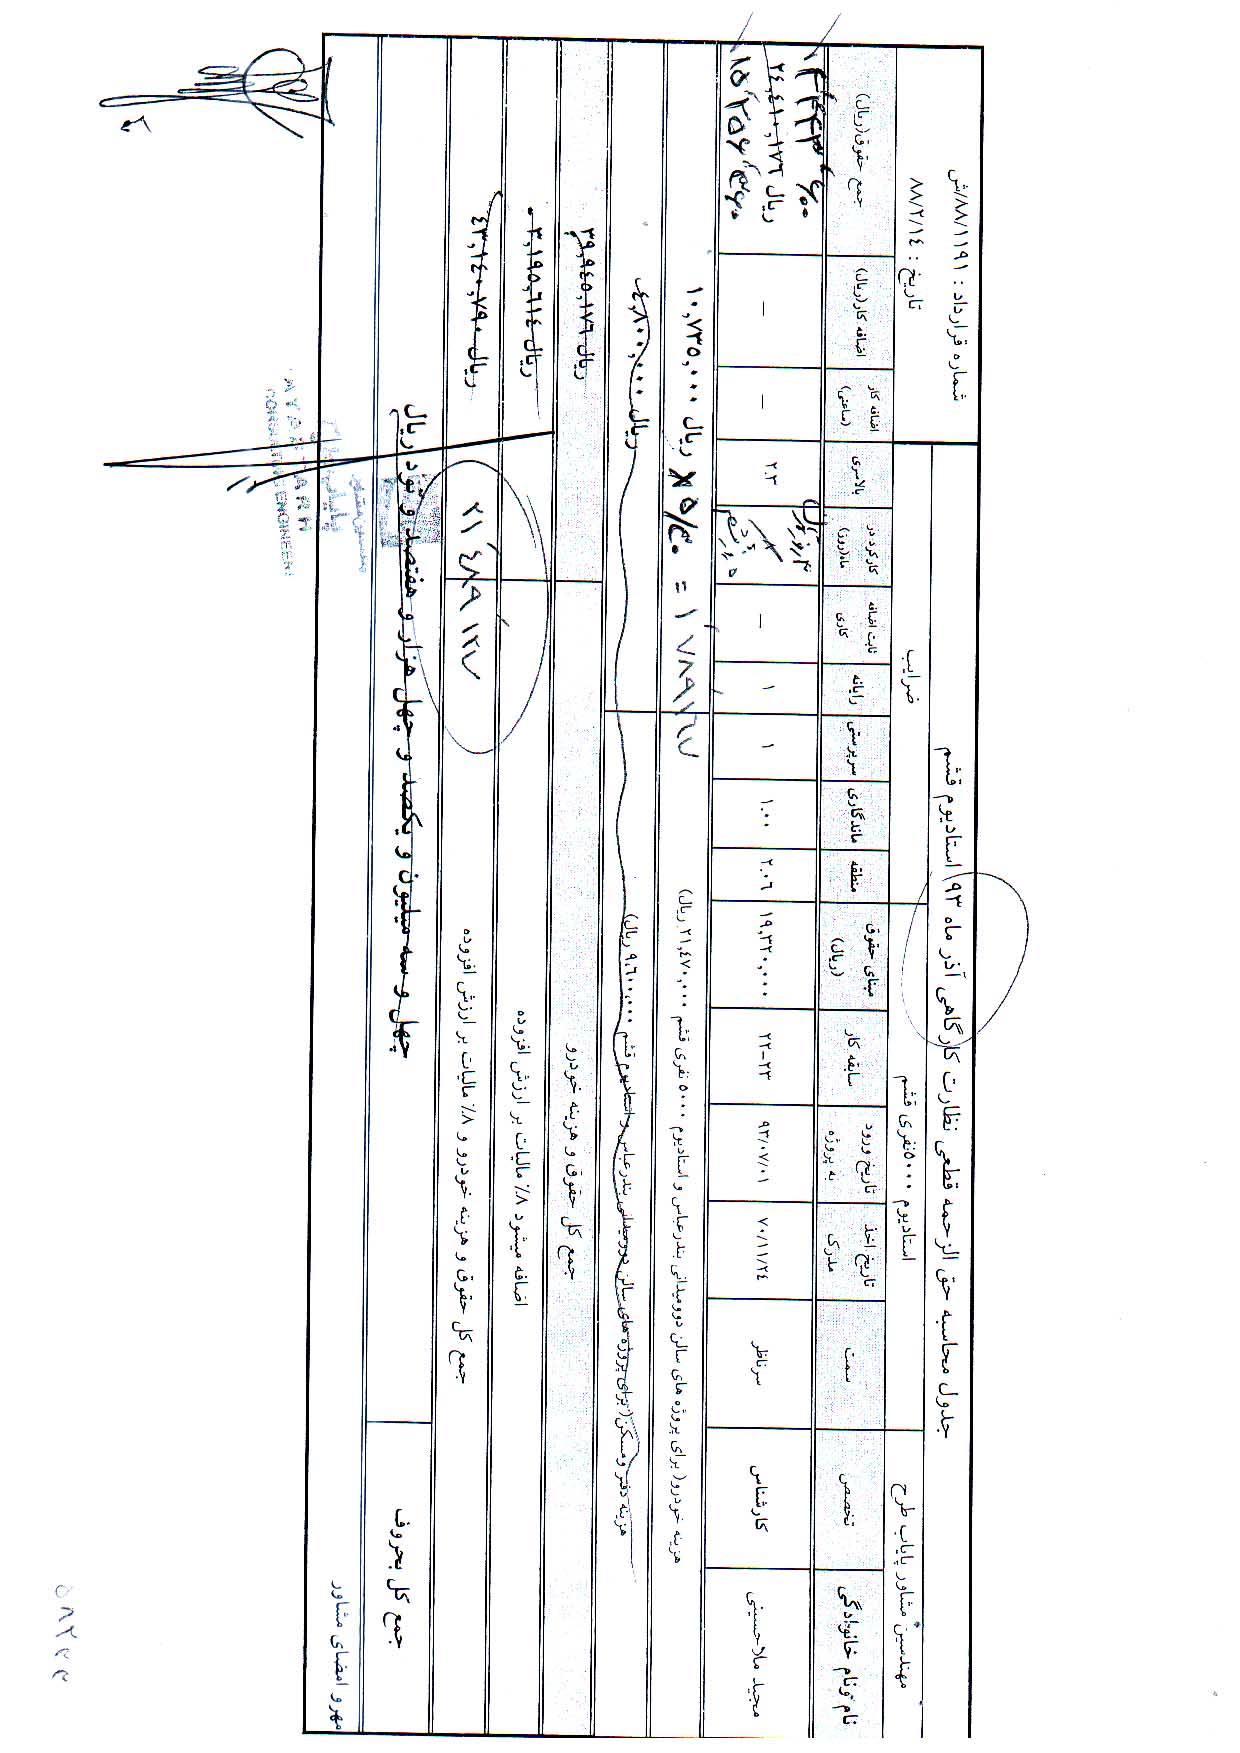 جدول محاسبه حق الزحمه قطعی نظارت کارگاهی آذر ماه ۹۳ استادیوم قشم
شماره قرارداد : ۸۸/۱۱۹۱/ش
تاریخ : ۸۸/۲/۱٤
مهندسین مشاور پایاب طرح
استادیوم ۵۰۰۰نفری قشم
ضرایب
نام ونام خانوادگی
تخصص
سمت
تاریخ اخذ مدرک
تاریخ ورود به پروژه
سابقه کار
مبنای حقوق (ریال)
منطقه
ماندگاری
سرپرستی
رایانه
ثابت اضافه کاری
کارکرد در ماه(روز)
بالاسری
اضافه کار (ساعتی)
اضافه کار(ریال)
جمع حقوق(ریال)
مجید ملاحسینی
کارشناس
سرناظر
۷۰/۱۱/۲٤
۹۳/۰۷/۰۱
۲۲-۲۳
۱۹,۳۲۰,۰۰۰
۲.۰٦
۱.۰۰
۱
۱
—
۲.۳
—
—
۲٤,٤۱۰,۱۷٦ ریال
هزینه خودرو( برای پروژه های سالن دوومیدانی بندرعباس و استادیوم ۵۰۰۰ نفری قشم ۲۱,٤۷۰,۰۰۰ ریال)
۱۰,۷۳۵,۰۰۰ ریال × ۵/۳۰ = ۱٬۷۸۹٬۱٦۷
هزینه دفتر ومسکن( برای پروژه های سالن دوومیدانی بندرعباس و استادیوم قشم ۹,٦۰۰,۰۰۰ ریال)
٤,۸۰۰,۰۰۰ ریال
جمع کل حقوق و هزینه خودرو
۳۹,۹٤۵,۱۷٦ ریال
اضافه میشود ۸٪ مالیات بر ارزش افزوده
۳,۱۹۵,٦۱٤ ریال
جمع کل حقوق و هزینه خودرو و ۸٪ مالیات بر ارزش افزوده
۲۱٬٤۸۹٬۱۲۷
٤۳,۱٤۰,۷۹۰ ریال
جمع کل بحروف
چهل و سه میلیون و یکصد و چهل هزار و هفتصد و نود ریال
مهر و امضای مشاور
CONSULTING ENGINEERS